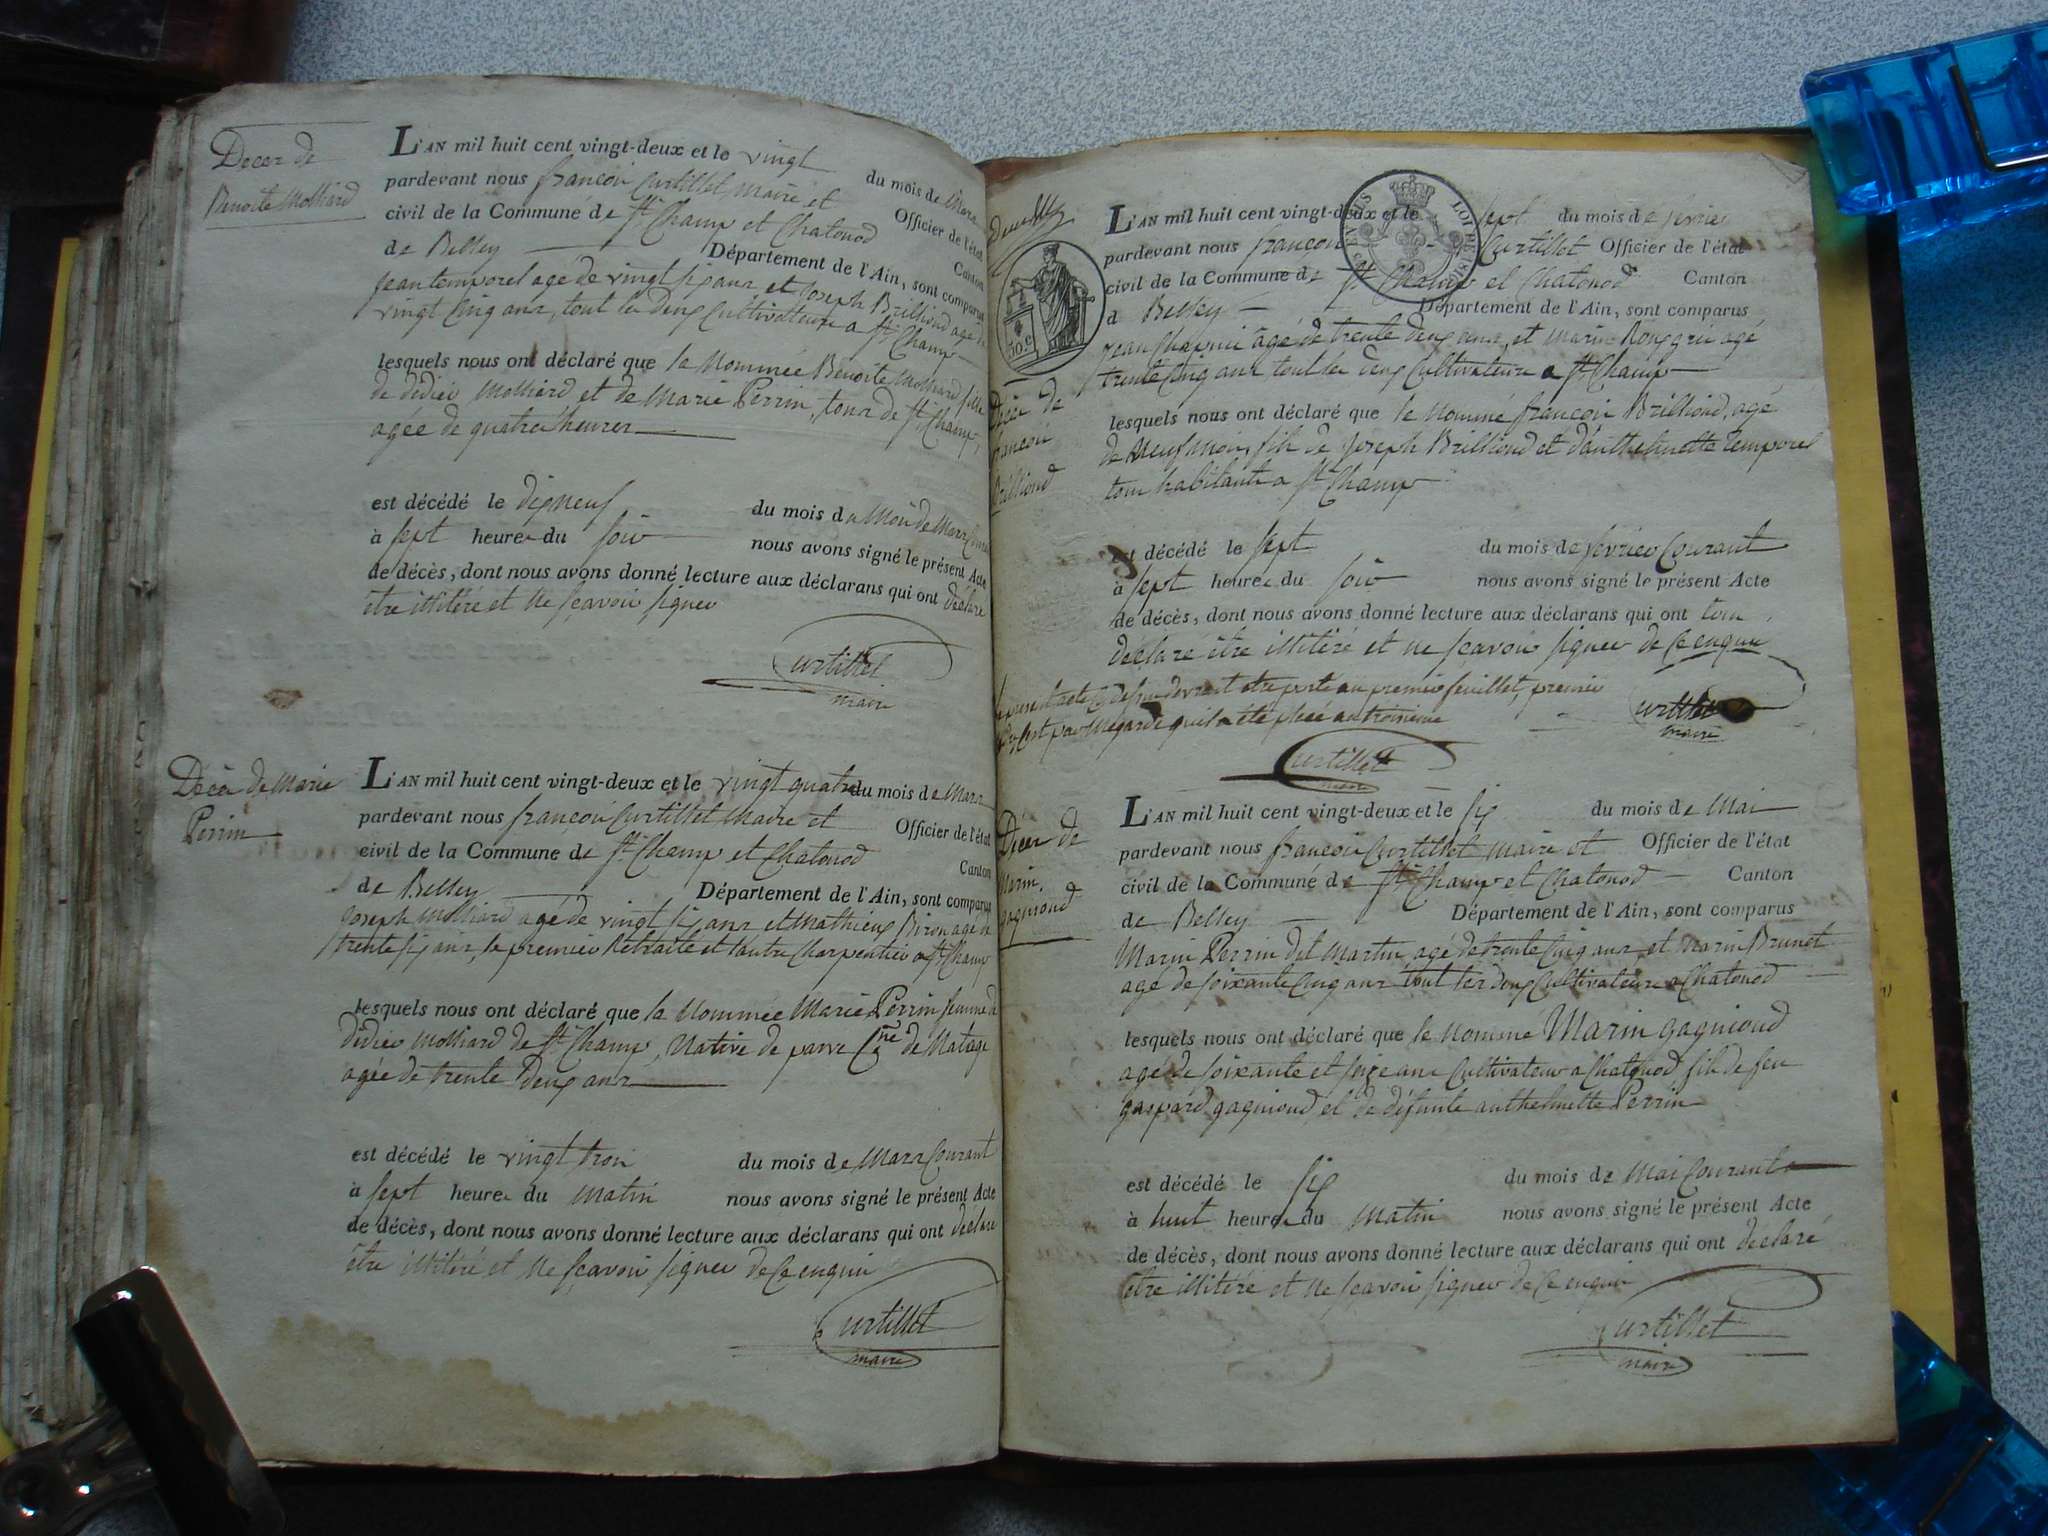 Deces de
Benoite Molliard
L'AN mil huit cent vingt-deux et le vingt du mois de Mars
pardevant nous françois Curtillet Maire et Officier de l'état
civil de la Commune de St Champ et Chatonod Canton
de Belley Département de l'Ain, sont comparus
Jean temporel agé de vingt six ans et Joseph Brilliond agé de
vingt Cinq ans, tout les deux Cultivateurs a St Champ
lesquels nous ont déclaré que la Nommée Benoite Molliard fille
de dédier Molliard et de Marie Perrin, tous de St Champ,
agée de quatre heures
est décédé le dix neuf du mois du Moi de Mars Courant
à sept heures du soir nous avons signé le présent Acte
de décès, dont nous avons donné lecture aux déclarans qui ont déclaré
être illitéré et ne sçavoir signer
Curtillet
maire
Décès de Marie
Perrin
L'AN mil huit cent vingt-deux et le vingt quatre du mois de Mars
pardevant nous françois Curtillet Maire et Officier de l'état
civil de la Commune de St Champ et Chatonod Canton
de Belley Département de l'Ain, sont comparus
Joseph Molliard agé de vingt six ans et Mathieux Biron agé de
trente six ans, le premier Retraité et l'autre Charpentier a St Champ
lesquels nous ont déclaré que la Nommée Marie Perrin femme de
dédier Molliard de St Champ, Native de parve Cne de Natage
agée de trente Deux ans
est décédé le vingt trois du mois de Mars Courant
à sept heures du Matin nous avons signé le présent Acte
de décès, dont nous avons donné lecture aux déclarans qui ont déclaré
être illitéré et Ne sçavoir signer de Ce enquis
Curtillet
maire
50.c
Décès de
françois
Brilliond
L'AN mil huit cent vingt-deux et le sept du mois de fevrier
pardevant nous françois Curtillet Officier de l'état
civil de la Commune de St Champ et Chatonod Canton
d Belley Département de l'Ain, sont comparus
Jean Chapuis âgé de trente deux ans, et Marin agé
trente Cinq ans tout les deux Cultivateurs a St Champ
lesquels nous ont déclaré que le Nommé françois Brilliond, agé
de Neuf mois, fils de Joseph Brilliond et d'anthelmette temporel
tous habitants a St Champ
est décédé le sept du mois de fevrier Courant
à sept heures du soir nous avons signé le présent Acte
de décès, dont nous avons donné lecture aux déclarans qui ont tous
déclaré être illitéré et ne sçavoir signer de Ce enquis
Curtillet
maire
le present acte devroit etre porte au premier feuillet, premier
c'est par Megarde qu'il a été placé au troisieme
Curtillet
maire
Décès de
Marin
gagniond
L'AN mil huit cent vingt-deux et le six du mois de Mai
pardevant nous françois Curtillet maire et Officier de l'état
civil de la Commune de St Champ et Chatonod Canton
de Belley Département de l'Ain, sont comparus
Marin Perrin dit Martin agé de trente Cinq ans, et Marin Brunet
agé de soixante Cinq ans tout les deux Cultivateurs a Chatonod
lesquels nous ont déclaré que le Nommé Marin gagniond
agé de soixante et seize ans Cultivateur a Chatonod fils de feu
gaspard gagniond et de défunte anthelmette Perrin
est décédé le six du mois de Mai Courant
à huit heures du Matin nous avons signé le présent Acte
de décès, dont nous avons donné lecture aux déclarans qui ont déclaré
être illitéré et Ne sçavoir signer de Ce enquis
Curtillet
maire